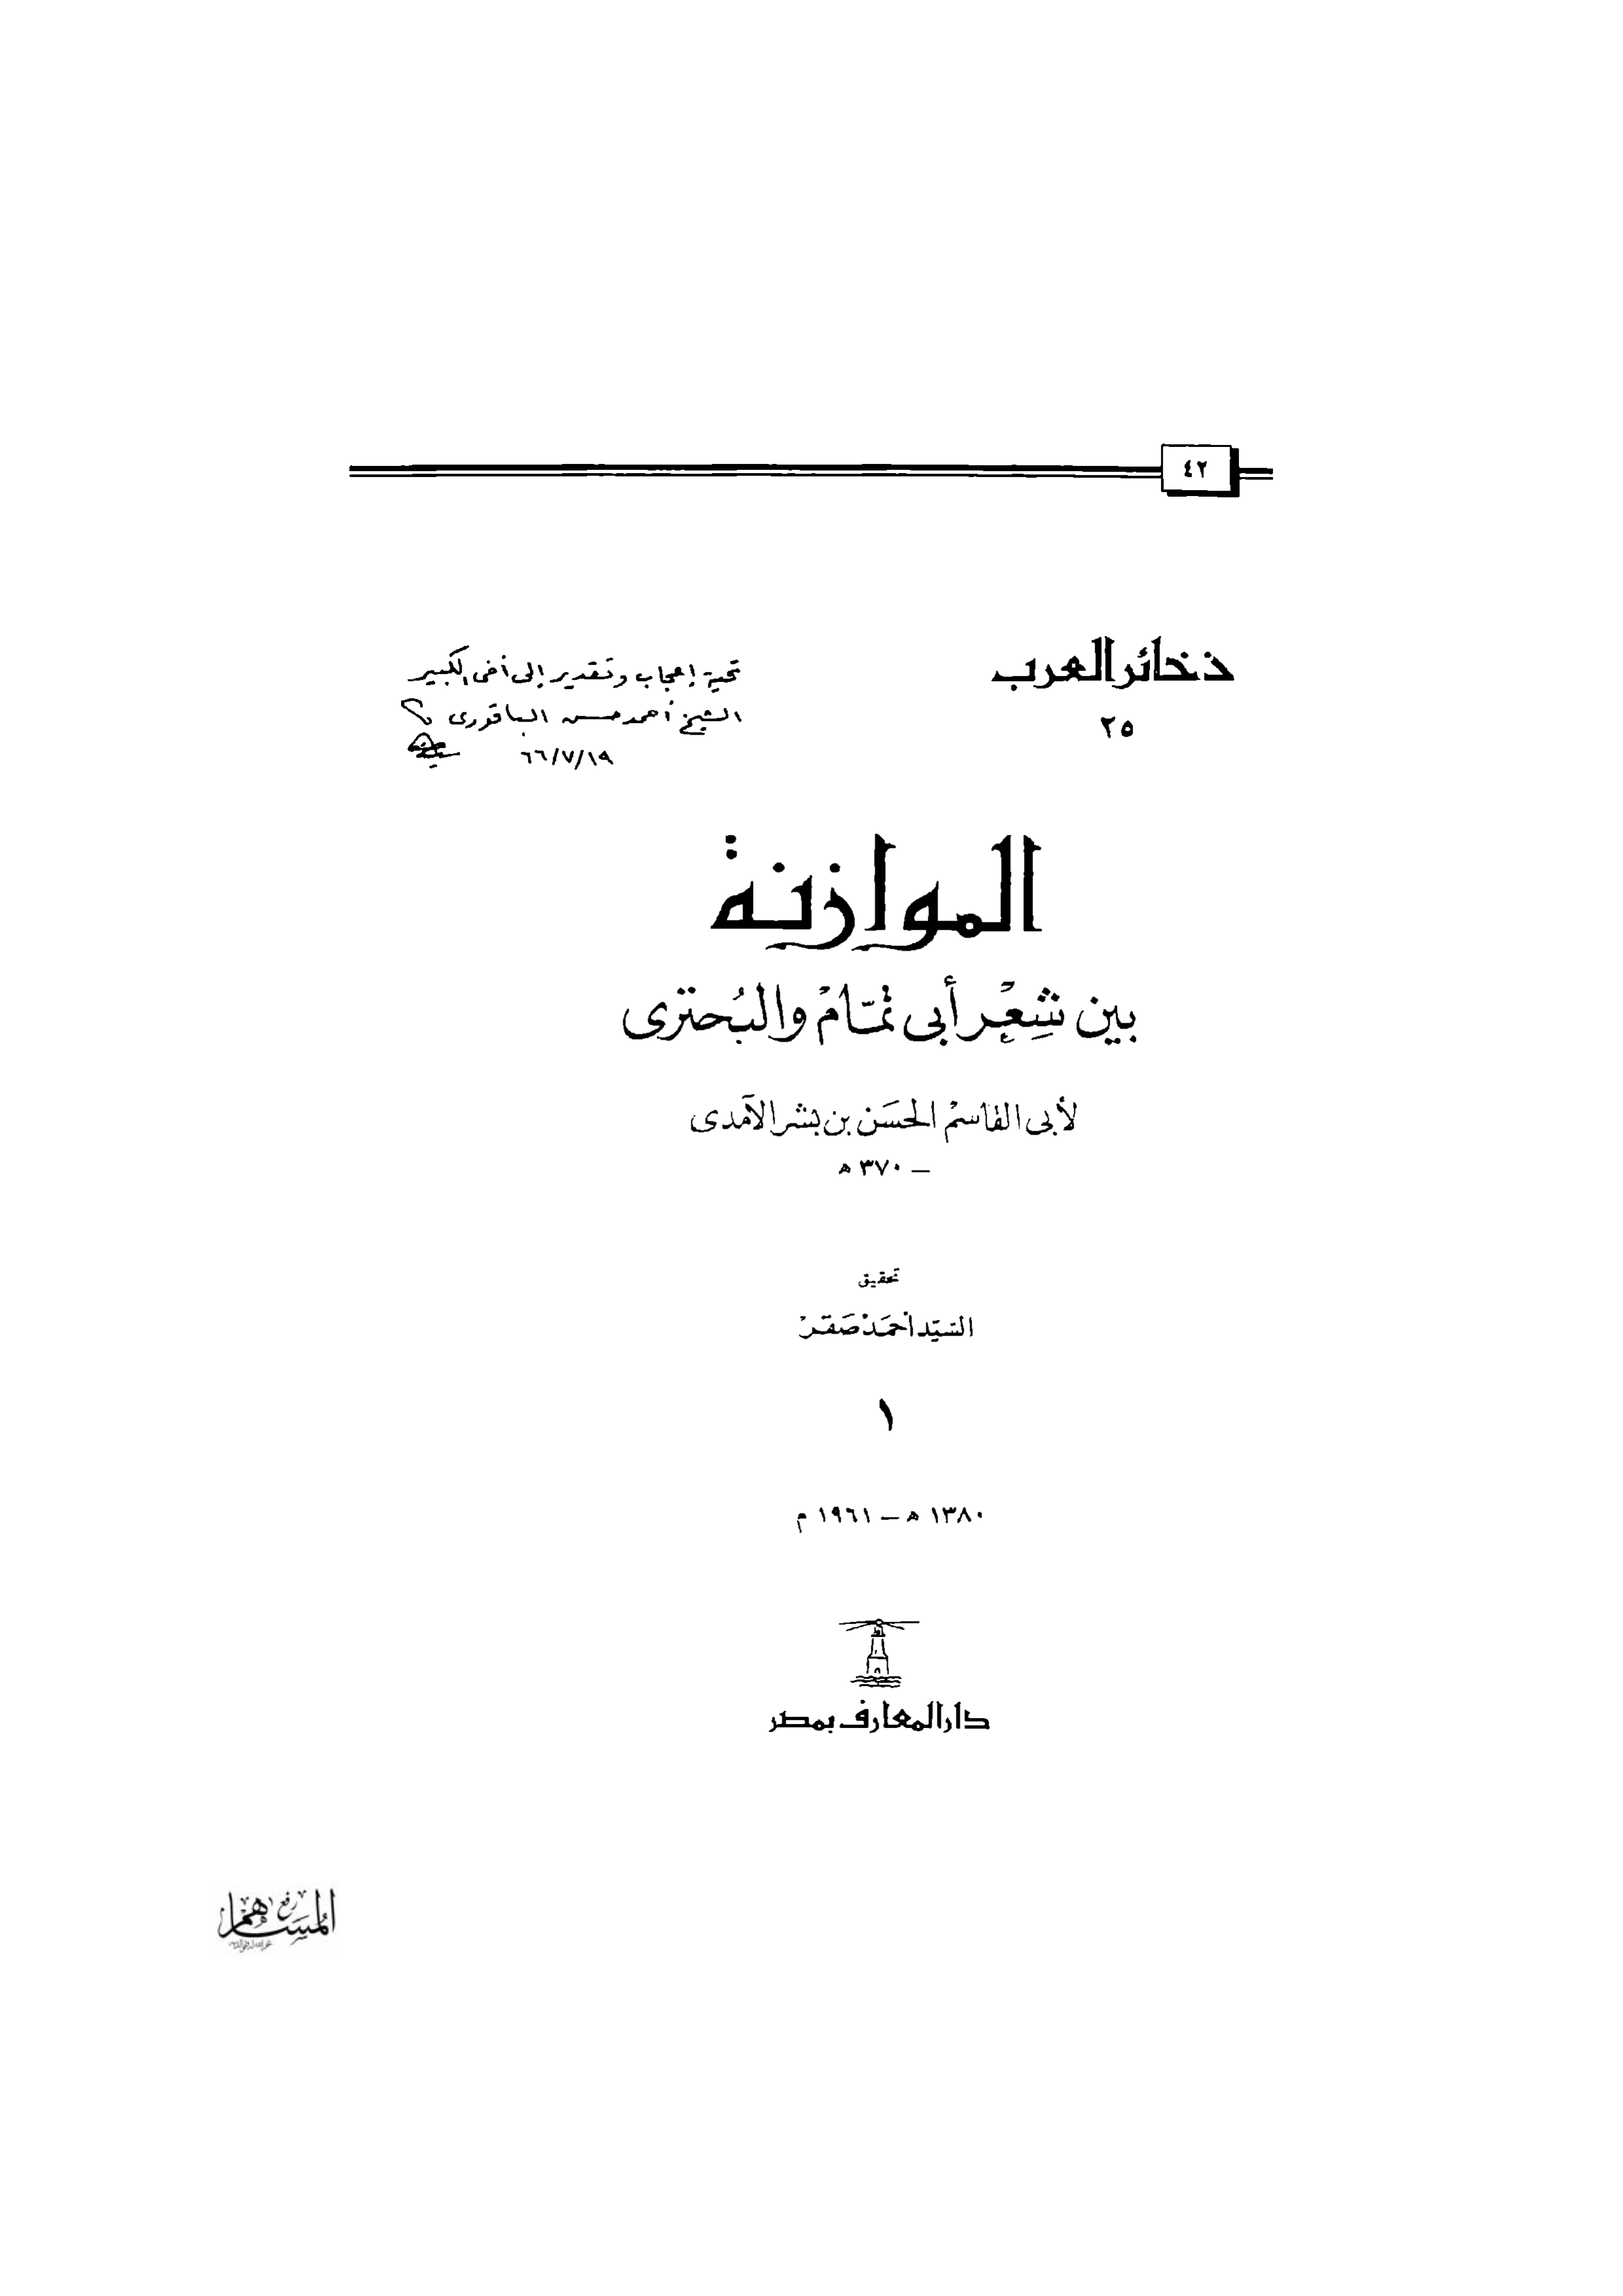 ٤٢
ذخائر العرب
٢٥
تحية إعجاب وتقدير إلى أخى الكبير
الشيخ أحمد حسن الباقورى
٦٦/٧/١٩
الموازنة
بين شِعْر أبى تمَّامْ والبُحترى
لأبى القاسمْ الحسَن بن بشر الآمدى
– ٣٧٠ ه
تحقيق
السَّيّد أحمَدْ صَقرْ
١
١٣٨٠ ه – ١٩٦١ م
دار المعارف بمصر
رفع
المساهم